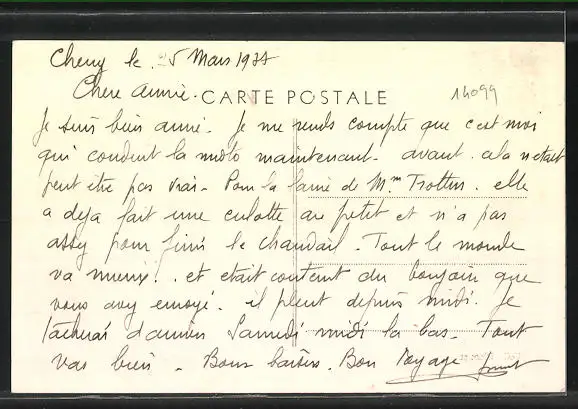 Cheny le 25 Mars 1934
Chere Annie.
CARTE POSTALE
14099
Je suis bien arrivé. Je me rends compte que c'est moi
qui conduit la moto maintenant. avant. cela n'etait
peut être pas vrai. Pour la laine de Mme Trottin. elle
a deja fait une culotte au petit et n'a pas
assez pour finir le chandail. Tout le monde
va mieux! . et etait content du que
vous avez envoyé. il pleut depuis midi. Je
tacherai d'arriver Samedi midi la bas. Tout
vas bien. Bons baisers. Bon Voyage